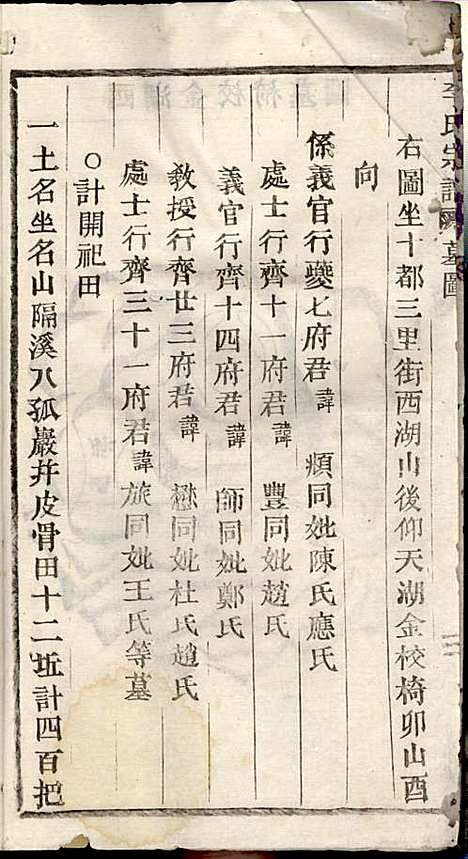 李氏宗譜 墓圖
右圖坐十都三里街西湖山後仰天湖金校椅卯山酉
向
係義官行夔七府君諱 頫同妣陳氏應氏
處士行齊十一府君諱 豐同妣趙氏
義官行齊十四府君諱 師同妣鄭氏
教授行齊廿三府君諱 懋同妣杜氏趙氏
處士行齊三十一府君諱 旅同妣王氏等墓
○計開祀田
一土名坐名山隔溪八孤巖幷皮骨田十二坵計四百把